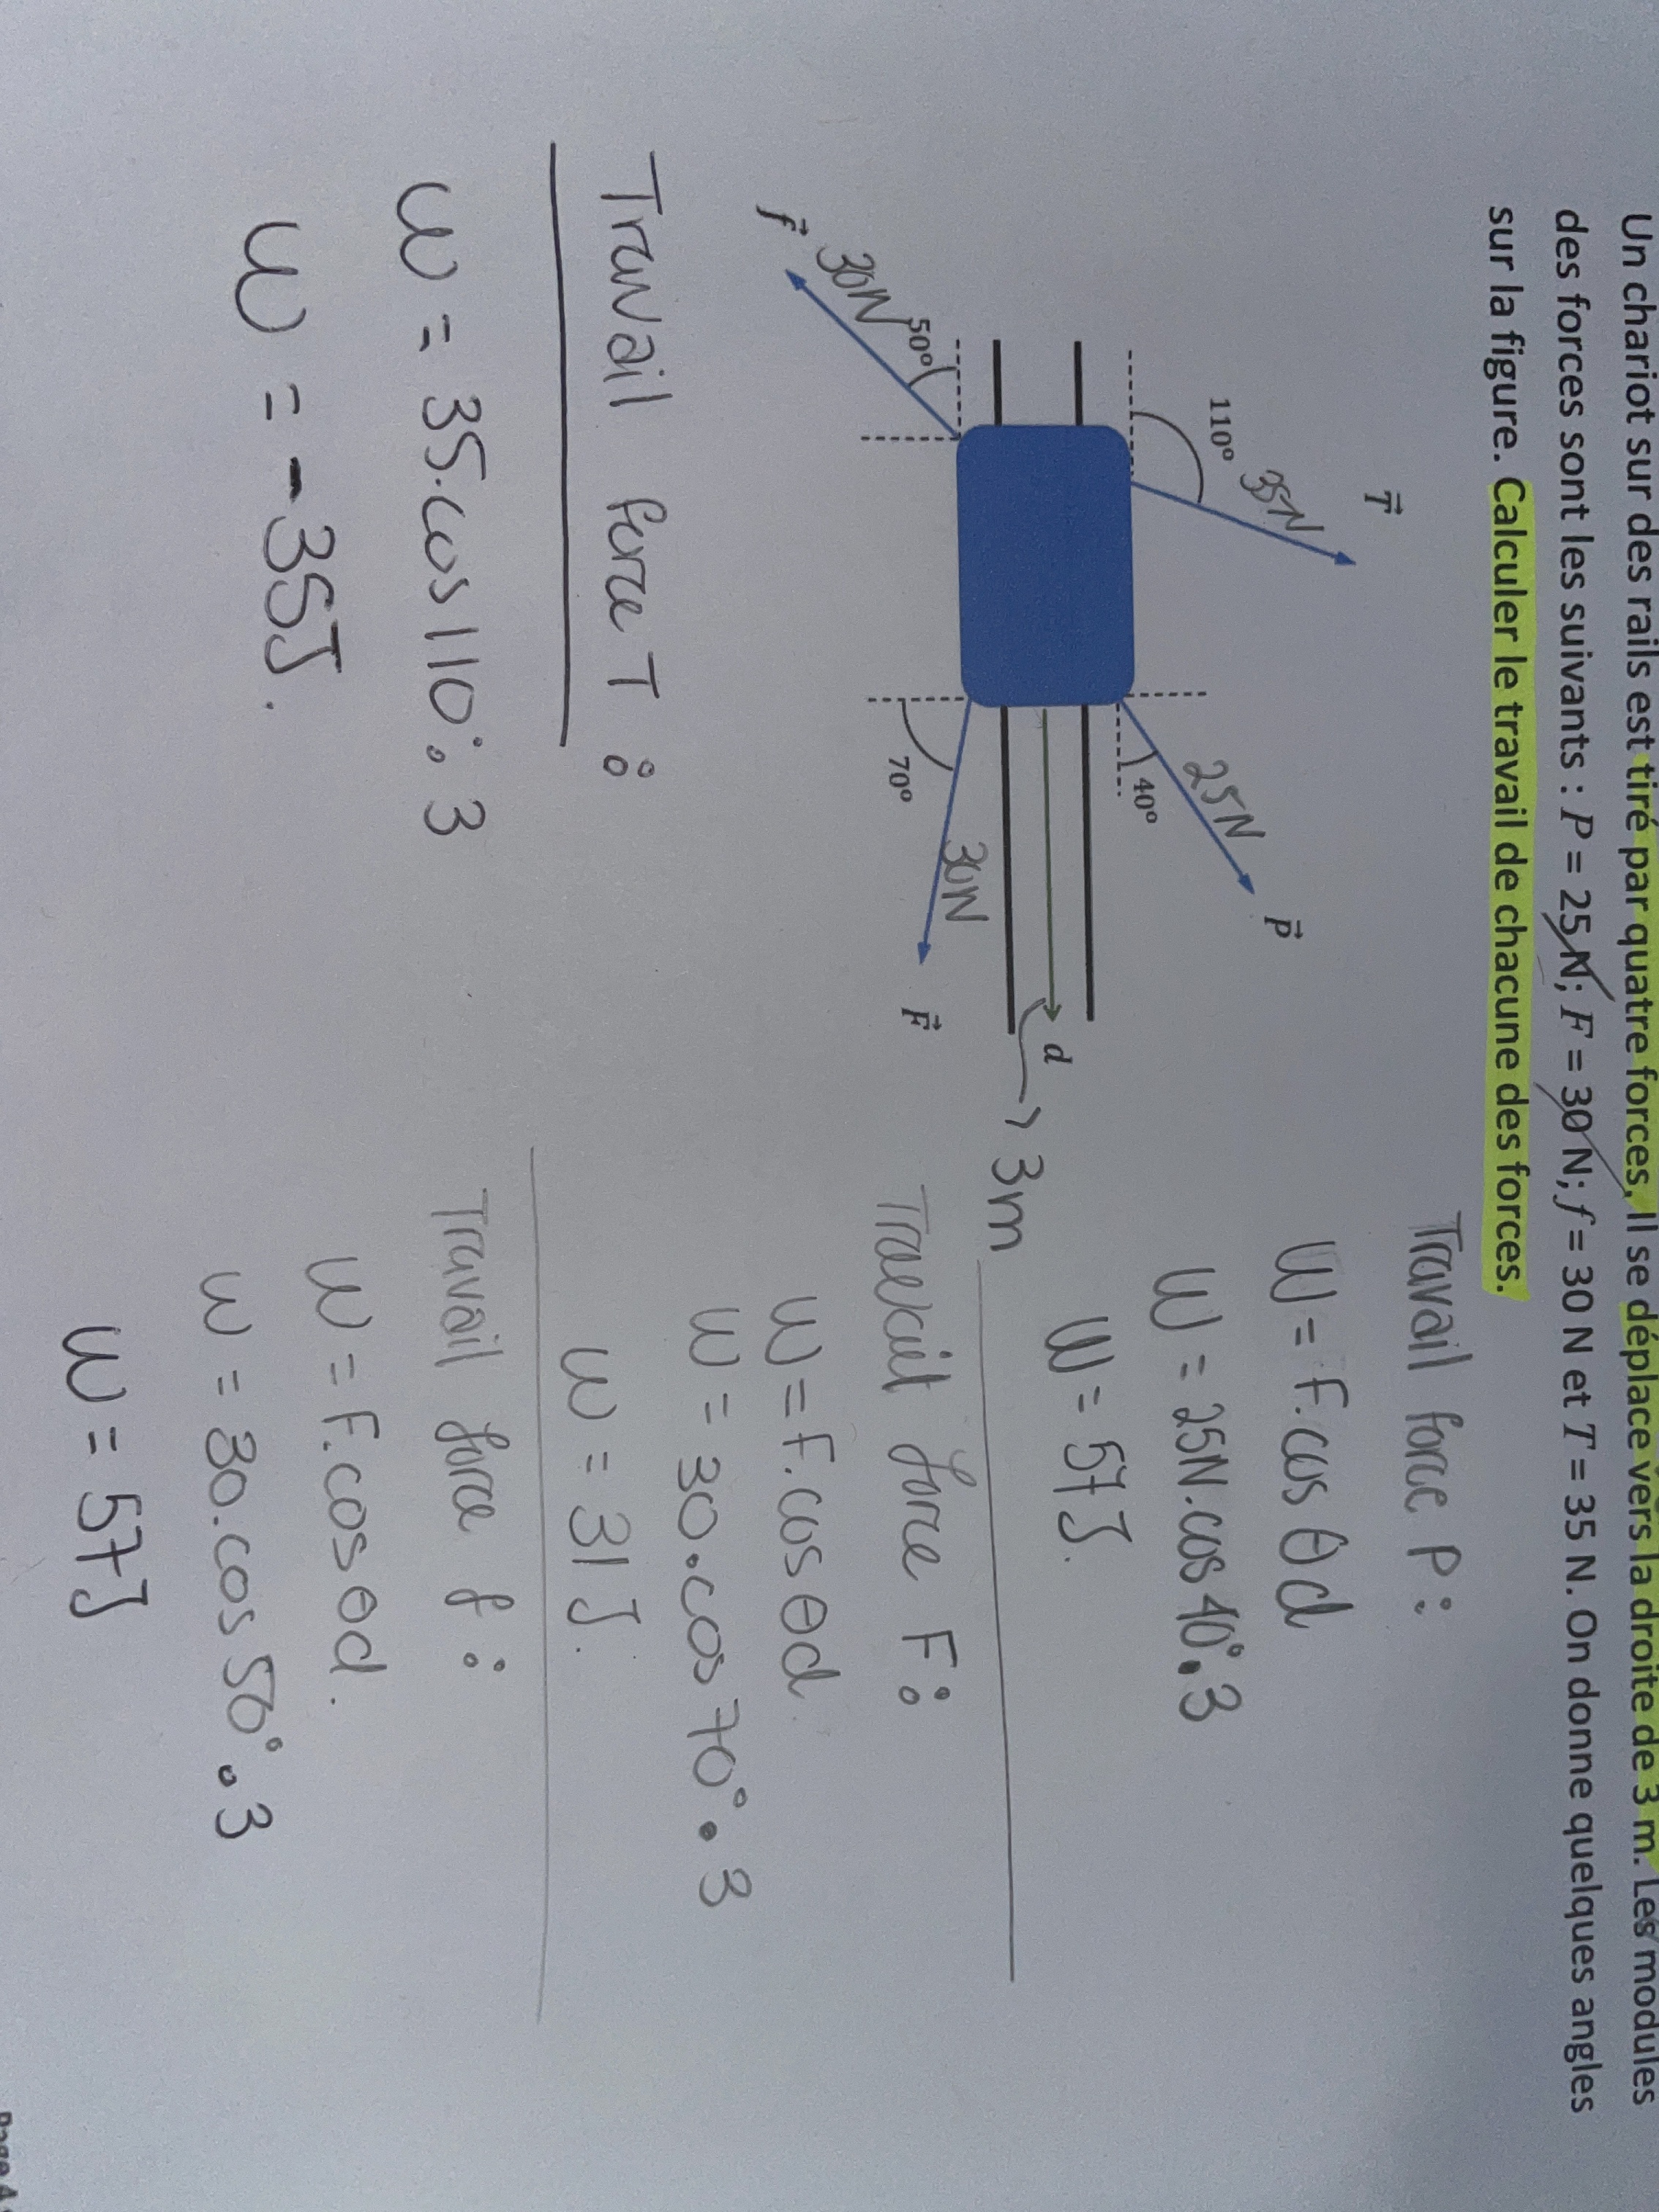 Un chariot sur des rails est tiré par quatre forces. Il se déplace vers la droite de 3 m. Les modules
des forces sont les suivants : P = 25 N; F = 30 N; f = 30 N et T = 35 N. On donne quelques angles
sur la figure. Calculer le travail de chacune des forces.
T⃗
35N
110°
P⃗
25N
40°
d
3m
50°
30N
f⃗
70°
30N
F⃗
Travail force P :
W = F.cos θd
W = 25N.cos 40°.3
W = 57J.
Travail force F :
W = F.cos θd
W = 30.cos 70°.3
W = 31J.
Travail force f :
W = F.cos θd.
W = 30.cos 50°.3
W = 57J
Travail force T :
W = 35.cos 110°.3
W = -35J.